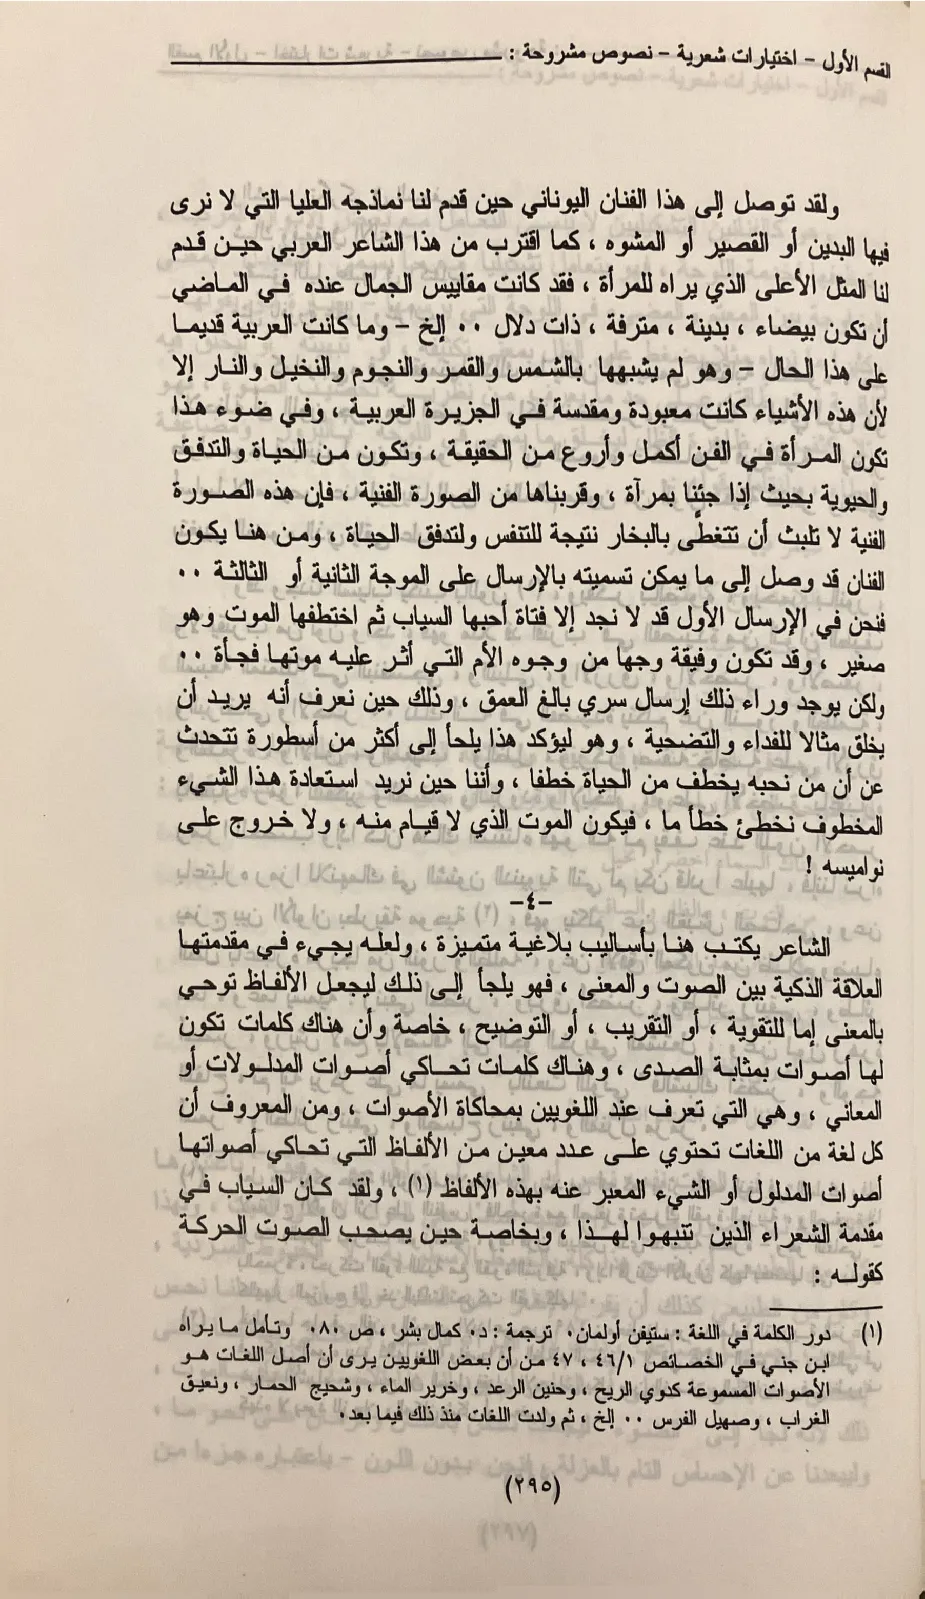 القسم الأول - اختيارات شعرية - نصوص مشروحة :
ولقد توصل إلى هذا الفنان اليوناني حين قدم لنا نماذجه العليا التي لا نرى
فيها البدين أو القصير أو المشوه ، كما اقترب من هذا الشاعر العربي حين قدم
لنا المثل الأعلى الذي يراه للمرأة ، فقد كانت مقاييس الجمال عنده في الماضي
أن تكون بيضاء ، بدينة ، مترفة ، ذات دلال ٠٠ إلخ - وما كانت العربية قديما
على هذا الحال - وهو لم يشبهها بالشمس والقمر والنجوم والنخيل والنار إلا
لأن هذه الأشياء كانت معبودة ومقدسة في الجزيرة العربية ، وفي ضوء هذا
تكون المرأة في الفن أكمل وأروع من الحقيقة ، وتكون من الحياة والتدفق
والحيوية بحيث إذا جئنا بمرآة ، وقربناها من الصورة الفنية ، فإن هذه الصورة
الفنية لا تلبث أن تتغطَّى بالبخار نتيجة للتنفس ولتدفق الحياة ، ومن هنا يكون
الفنان قد وصل إلى ما يمكن تسميته بالإرسال على الموجة الثانية أو الثالثة ٠٠
فنحن في الإرسال الأول قد لا نجد إلا فتاة أحبها السياب ثم اختطفها الموت وهو
صغير ، وقد تكون وفيقة وجها من وجوه الأم التي أثر عليه موتها فجأة ٠٠
ولكن يوجد وراء ذلك إرسال سري بالغ العمق ، وذلك حين نعرف أنه يريد أن
يخلق مثالا للفداء والتضحية ، وهو ليؤكد هذا يلجأ إلى أكثر من أسطورة تتحدث
عن أن من نحبه يخطف من الحياة خطفا ، وأننا حين نريد استعادة هذا الشيء
المخطوف نخطئ خطأ ما ، فيكون الموت الذي لا قيام منه ، ولا خروج على
نواميسه !
-٤-
الشاعر يكتب هنا بأساليب بلاغية متميزة ، ولعله يجيء في مقدمتها
العلاقة الذكية بين الصوت والمعنى ، فهو يلجأ إلى ذلك ليجعل الألفاظ توحي
بالمعنى إما للتقوية ، أو التقريب ، أو التوضيح ، خاصة وأن هناك كلمات تكون
لها أصوات بمثابة الصدى ، وهناك كلمات تحاكي أصوات المدلولات أو
المعاني ، وهي التي تعرف عند اللغويين بمحاكاة الأصوات ، ومن المعروف أن
كل لغة من اللغات تحتوي على عدد معين من الألفاظ التي تحاكي أصواتها
أصوات المدلول أو الشيء المعبر عنه بهذه الألفاظ (١) ، ولقد كان السياب في
مقدمة الشعراء الذين تنبهوا لهذا ، وبخاصة حين يصحب الصوت الحركة
كقوله :
(١) دور الكلمة في اللغة : ستيفن أولمان٠ ترجمة : د٠ كمال بشر ، ص ٨٠٠ وتأمل ما يراه
ابن جني في الخصائص ٤٦/١ ، ٤٧ من أن بعض اللغويين يرى أن أصل اللغات هو
الأصوات المسموعة كدوي الريح ، وحنين الرعد ، وخرير الماء ، وشحيج الحمار ، ونعيق
الغراب ، وصهيل الفرس ٠٠ إلخ ، ثم ولدت اللغات منذ ذلك فيما بعد٠
(٢٩٥)